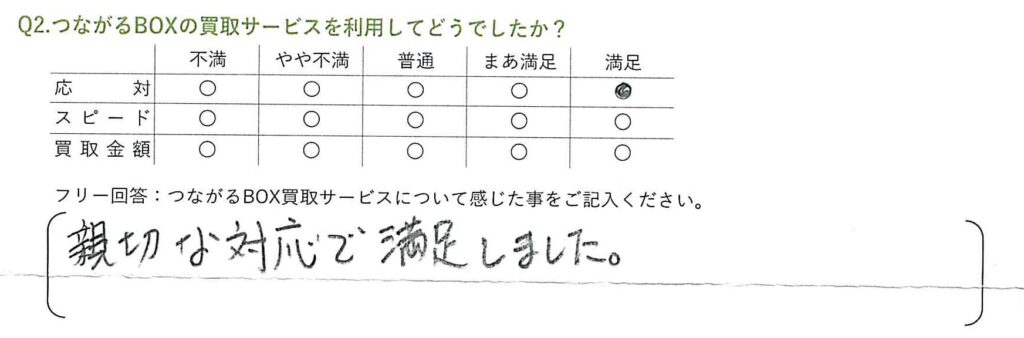 Q2.つながるBOXの買取サービスを利用してどうでしたか？
不満 やや不満 普通 まあ満足 満足
応対 ○ ○ ○ ○ ●
スピード ○ ○ ○ ○ ○
買取金額 ○ ○ ○ ○ ○
フリー回答：つながるBOX買取サービスについて感じた事をご記入ください。
親切な対応で満足しました。